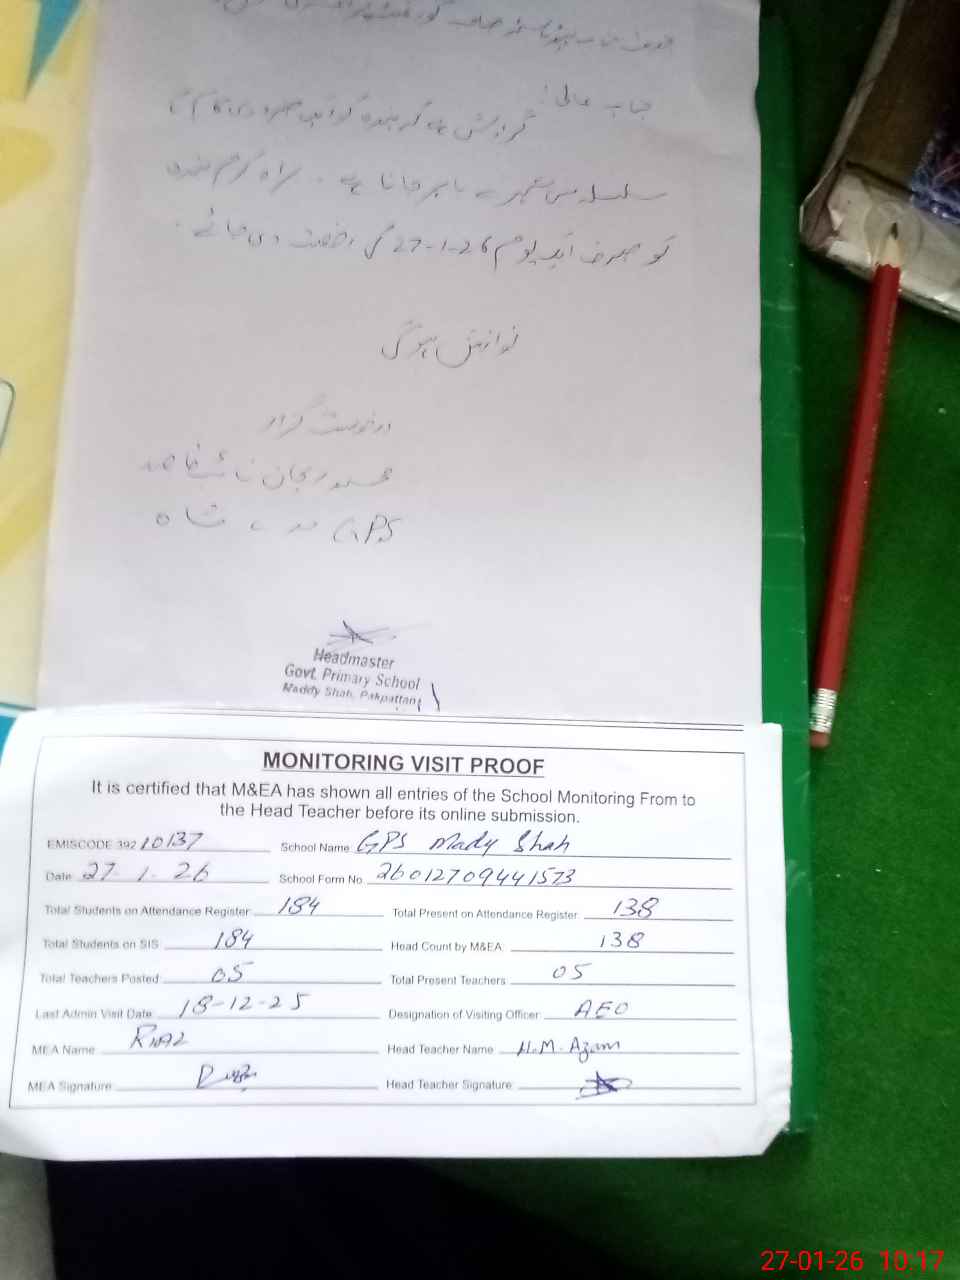 جناب عالی!
گزارش ہے کہ بندہ کو ایک ضروری کام کے
سلسلہ میں شہر سے باہر جانا ہے۔ براہ کرم بندہ
کو صرف ایک یوم 27-1-26 کی رخصت دی جائے۔
نوازش ہوگی
درخواست گزار
GPS شاہ
Headmaster
Govt. Primary School
Maddy Shah, Pakpattan
MONITORING VISIT PROOF
It is certified that M&EA has shown all entries of the School Monitoring From to
the Head Teacher before its online submission.
EMISCODE 392 10137 School Name GPS Mady Shah
Date 27-1-26 School Form No 26012709441573
Total Students on Attendance Register 184 Total Present on Attendance Register 138
Total Students on SIS 184 Head Count by M&EA 138
Total Teachers Posted 05 Total Present Teachers 05
Last Admin Visit Date 18-12-25 Designation of Visiting Officer AEO
MEA Name Riaz Head Teacher Name H.M. Azam
MEA Signature Head Teacher Signature
27-01-26 10:17